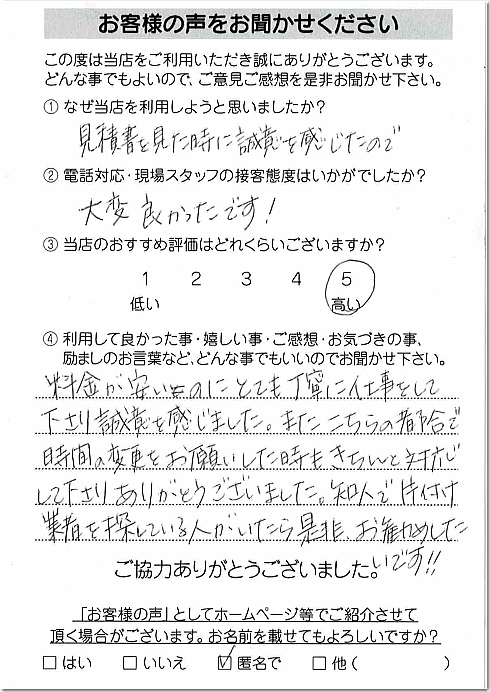 お客様の声をお聞かせください
この度は当店をご利用いただき誠にありがとうございます。
どんな事でもよいので、ご意見ご感想を是非お聞かせ下さい。
① なぜ当店を利用しようと思いましたか?
見積書を見た時に誠意を感じたので
② 電話対応・現場スタッフの接客態度はいかがでしたか?
大変良かったです!
③ 当店のおすすめ評価はどれくらいございますか?
1 2 3 4 5
低い 高い
④ 利用して良かった事・嬉しい事・ご感想・お気づきの事、
励ましのお言葉など、どんな事でもいいのでお聞かせ下さい。
料金が安いものにとても丁寧に仕事をして
下さり誠意を感じました。またこちらの都合で
時間の変更をお願いした時もきちんと対応
して下さりありがとうございました。知人で片付け
業者を探している人がいたら是非、お薦めした
いです!!
ご協力ありがとうございました。
「お客様の声」としてホームページ等でご紹介させて
頂く場合がございます。お名前を載せてもよろしいですか?
□ はい □ いいえ ☑ 匿名で □ 他( )